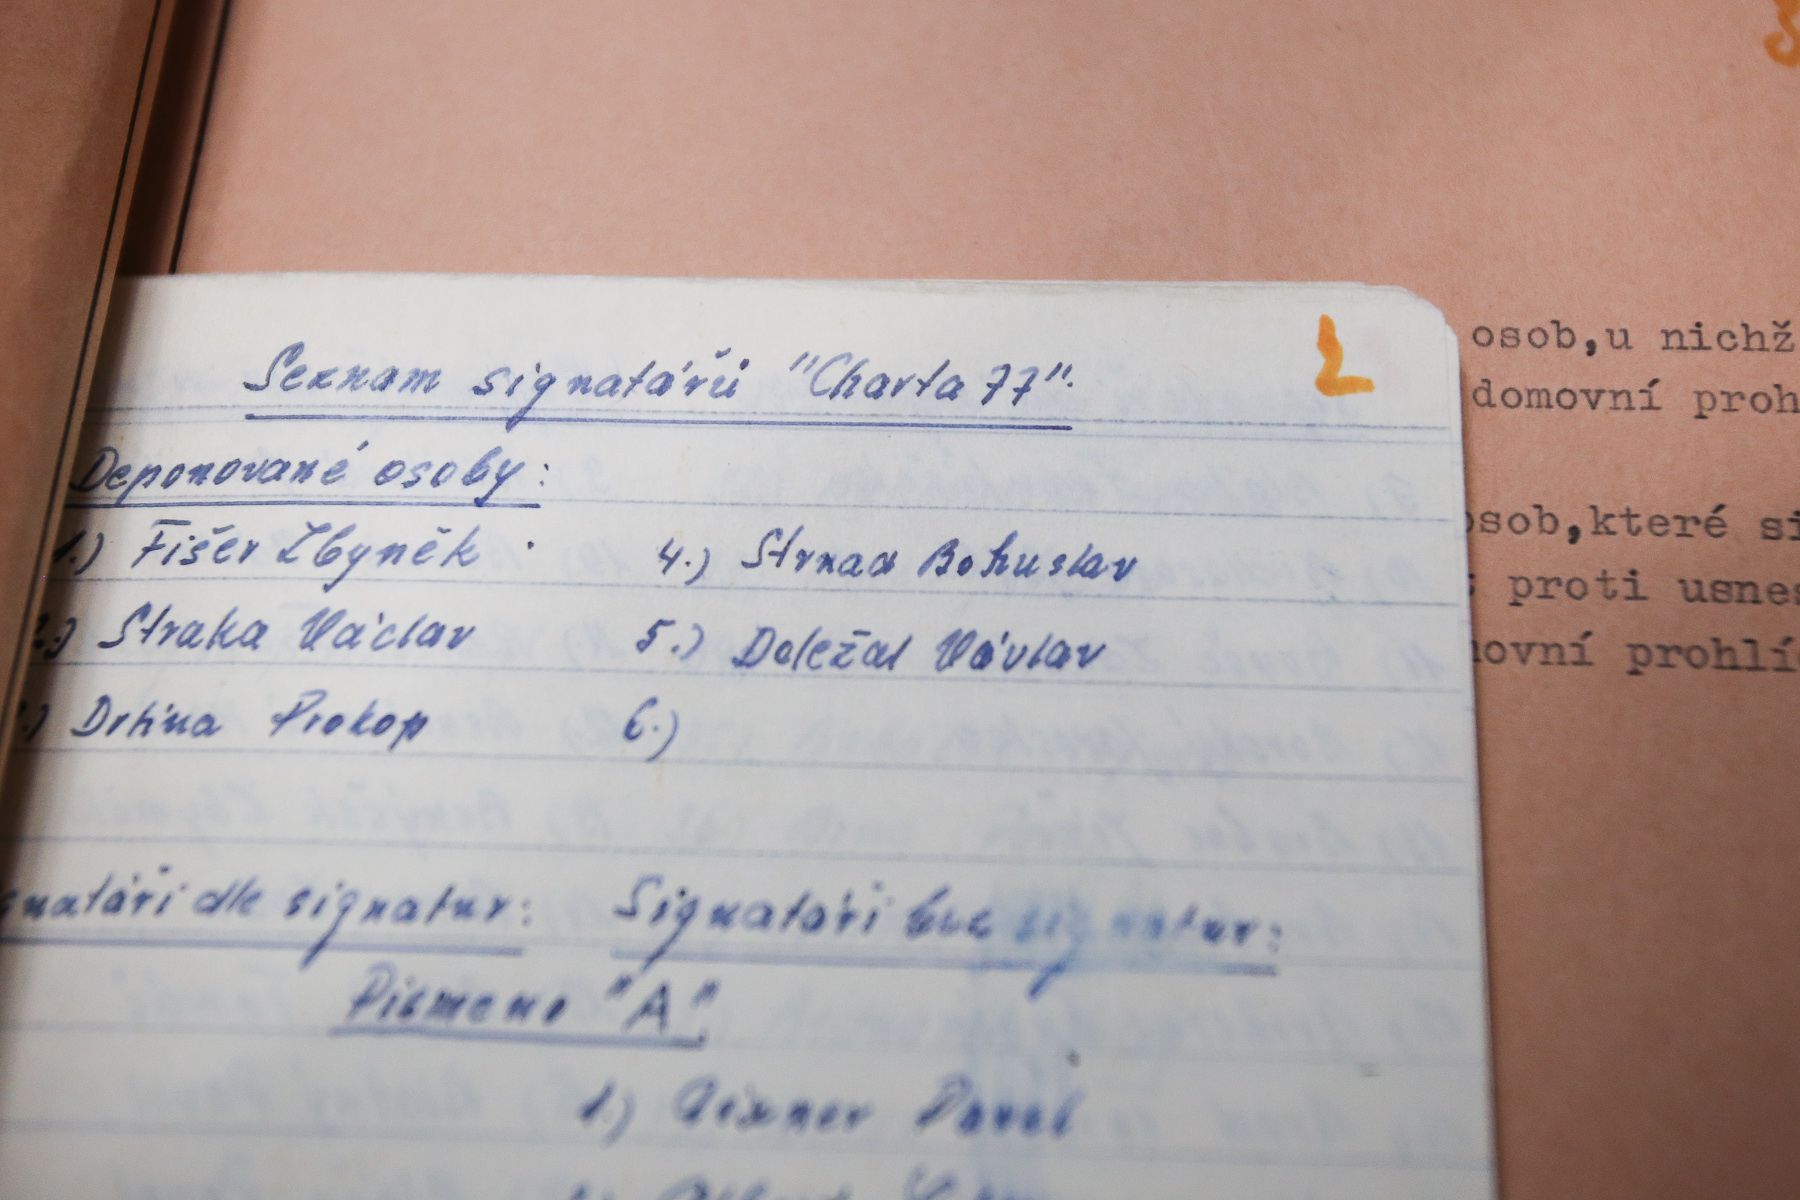 Seznam signatářů "Charta 77".
L
Deponované osoby:
1.) Fišer Zbyněk
4.) Strnad Bohuslav
2.) Straka Václav
5.) Doležal Václav
3.) Drtina Prokop
6.)
gnatáři dle signatur:
Signatáři bez signatur:
Písmeno "A"
1.) Aixner Pavel
osob,u nichž
domovní proh
osob,které si
proti usnes
ovní prohlí